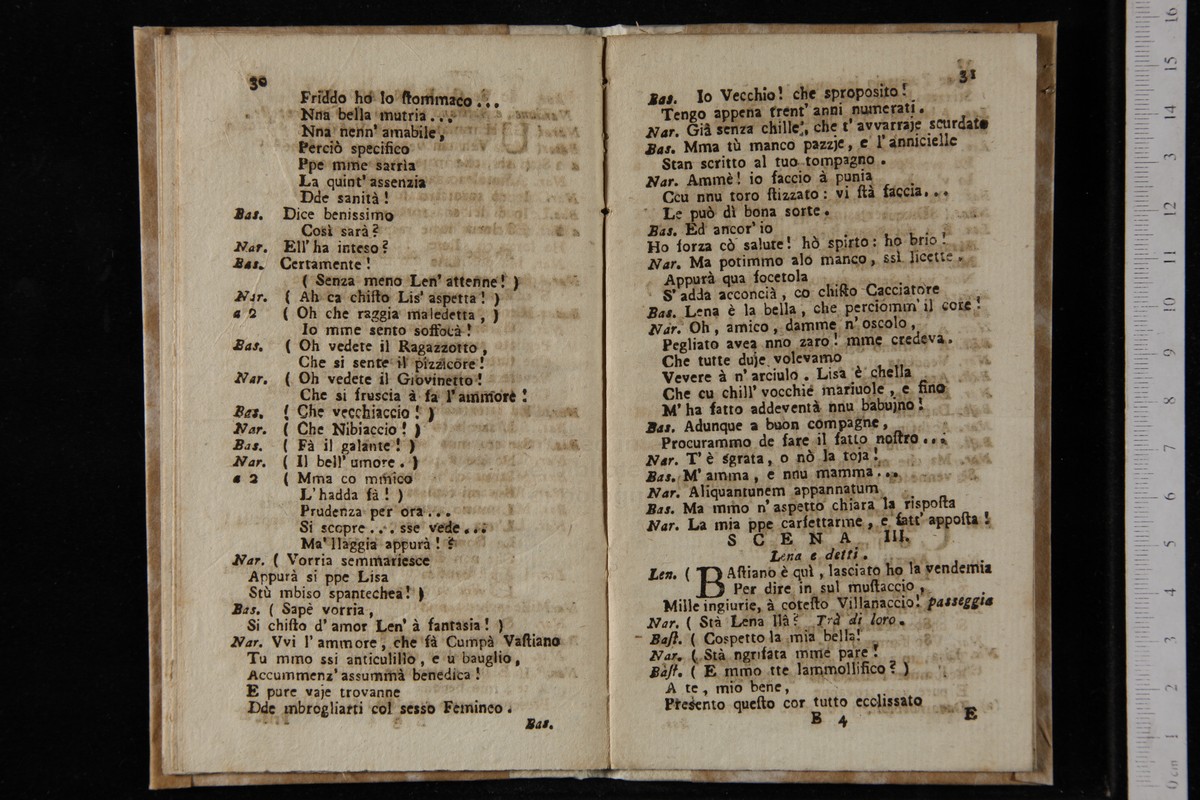 30
Friddo ho lo ſtommaco...
Nna bella mutria...
Nna nenn' amabile,
Perciò specifico
Ppe mme sarrìa
La quint' assenzia
Dde sanità!
Bas. Dice benissimo
Così sarà?
Nar. Ell' ha inteso?
Bas. Certamente!
( Senza meno Len' attenne! )
Nar. ( Ah ca chiſto Lis' aspetta! )
a 2 ( Oh che raggia maledetta, )
Io mme sento soffocà!
Bas. ( Oh vedete il Ragazzotto,
Che si sente il pizzicore!
Nar. ( Oh vedete il Giovinetto!
Che si fruscia à fa l'ammore!
Bas. ( Che vecchiaccio! )
Nar. ( Che Nibiaccio! )
Bas. ( Fà il galante! )
Nar. ( Il bell' umore. )
a 2 ( Mma co mmico
L'hadda fà! )
Prudenza per ora...
Si scopre... sse vede...
Ma' llaggia appurà!
Nar. ( Vorria semmariesce
Appurà si ppe Lisa
Stù mbiso spantechea! )
Bas. ( Sapè vorria,
Si chiſto d'amor Len' à fantasia! )
Nar. Vvi l'ammore, che fà Cumpà Vaſtiano
Tu mmo ssi anticulillo, e u bauglio,
Accummenz' assummà benedica!
E pure vaje trovanne
Dde mbrogliarti col sesso Femineo.
Bas.
31
Bas. Io Vecchio! che sproposito!
Tengo appena trent' anni numerati.
Nar. Già senza chille, che t' avvarraje scurdate
Bas. Mma tù manco pazzje, e l'annicielle
Stan scritto al tuo tompagno.
Nar. Ammè! io faccio à punia
Ccu nnu toro ſtizzato: vi ſtà faccia...
Le può dì bona sorte.
Bas. Ed ancor' io
Ho forza cò salute! hò spirto: ho brio!
Nar. Ma potimmo alò manco, ssì licette.
Appurà qua focetola
S' adda acconcià, co chiſto Cacciatore
Bas. Lena è la bella, che perciomm' il core!
Nar. Oh, amico, damme n' oscolo,
Pegliato avea nno zaro! mme credeva.
Che tutte duje volevamo
Vevere à n' arciulo. Lisa è chella
Che cu chill' vocchie mariuole, e fino
M' ha fatto addeventà nnu babujno!
Bas. Adunque a buon compagne,
Procurammo de fare il fatto noſtro...
Nar. T' è sgrata, o nò la toja!
Bas. M' amma, e nnu mamma...
Nar. Aliquantunem appannatum
Bas. Ma mmo n' aspetto chiara la risposta
Nar. La mia ppe carfettarme, e fatt' apposta!
SCENA III.
Lena e detti.
Len. ( BAſtiano è quì, lasciato ho la vendemia
Per dire in sul muſtaccio,
Mille ingiurie, à coteſto Villanaccio! passeggia
Nar. ( Stà Lena llà? Trà di loro.
Baſt. ( Cospetto la mia bella!
Nar. ( Stà ngrifata mme pare!
Baſt. ( E mmo tte lammollifico? )
A te, mio bene,
Presento queſto cor tutto ecclissato
B 4
E